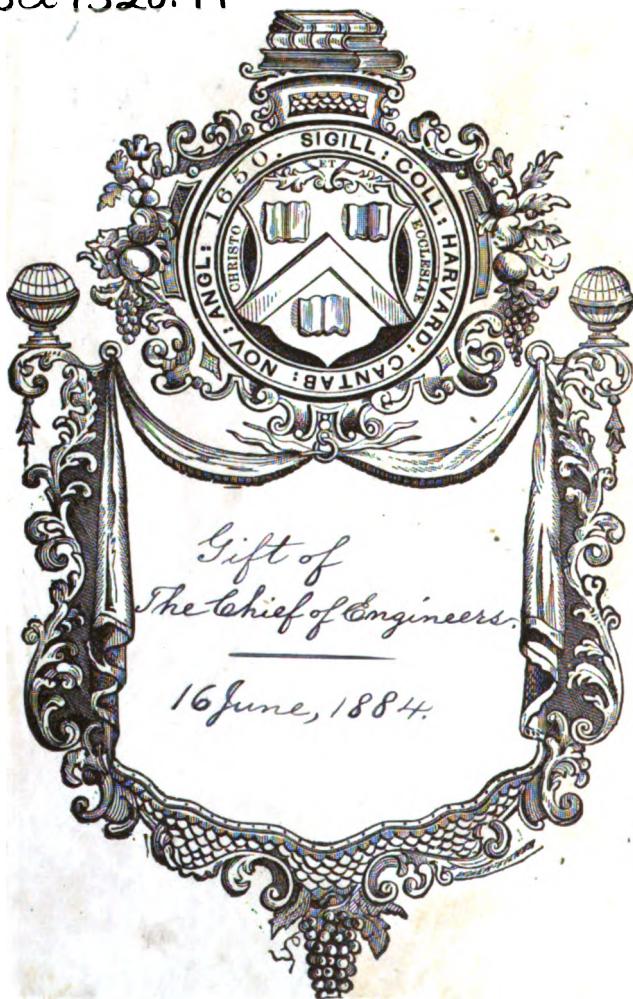 1320.11
SIGILL: COLL: HARVARD: CANTAB: NOV: ANGL: 1650.
CHRISTO ET ECCLESIAE
Gift of
The Chief of Engineers.
16 June, 1884.